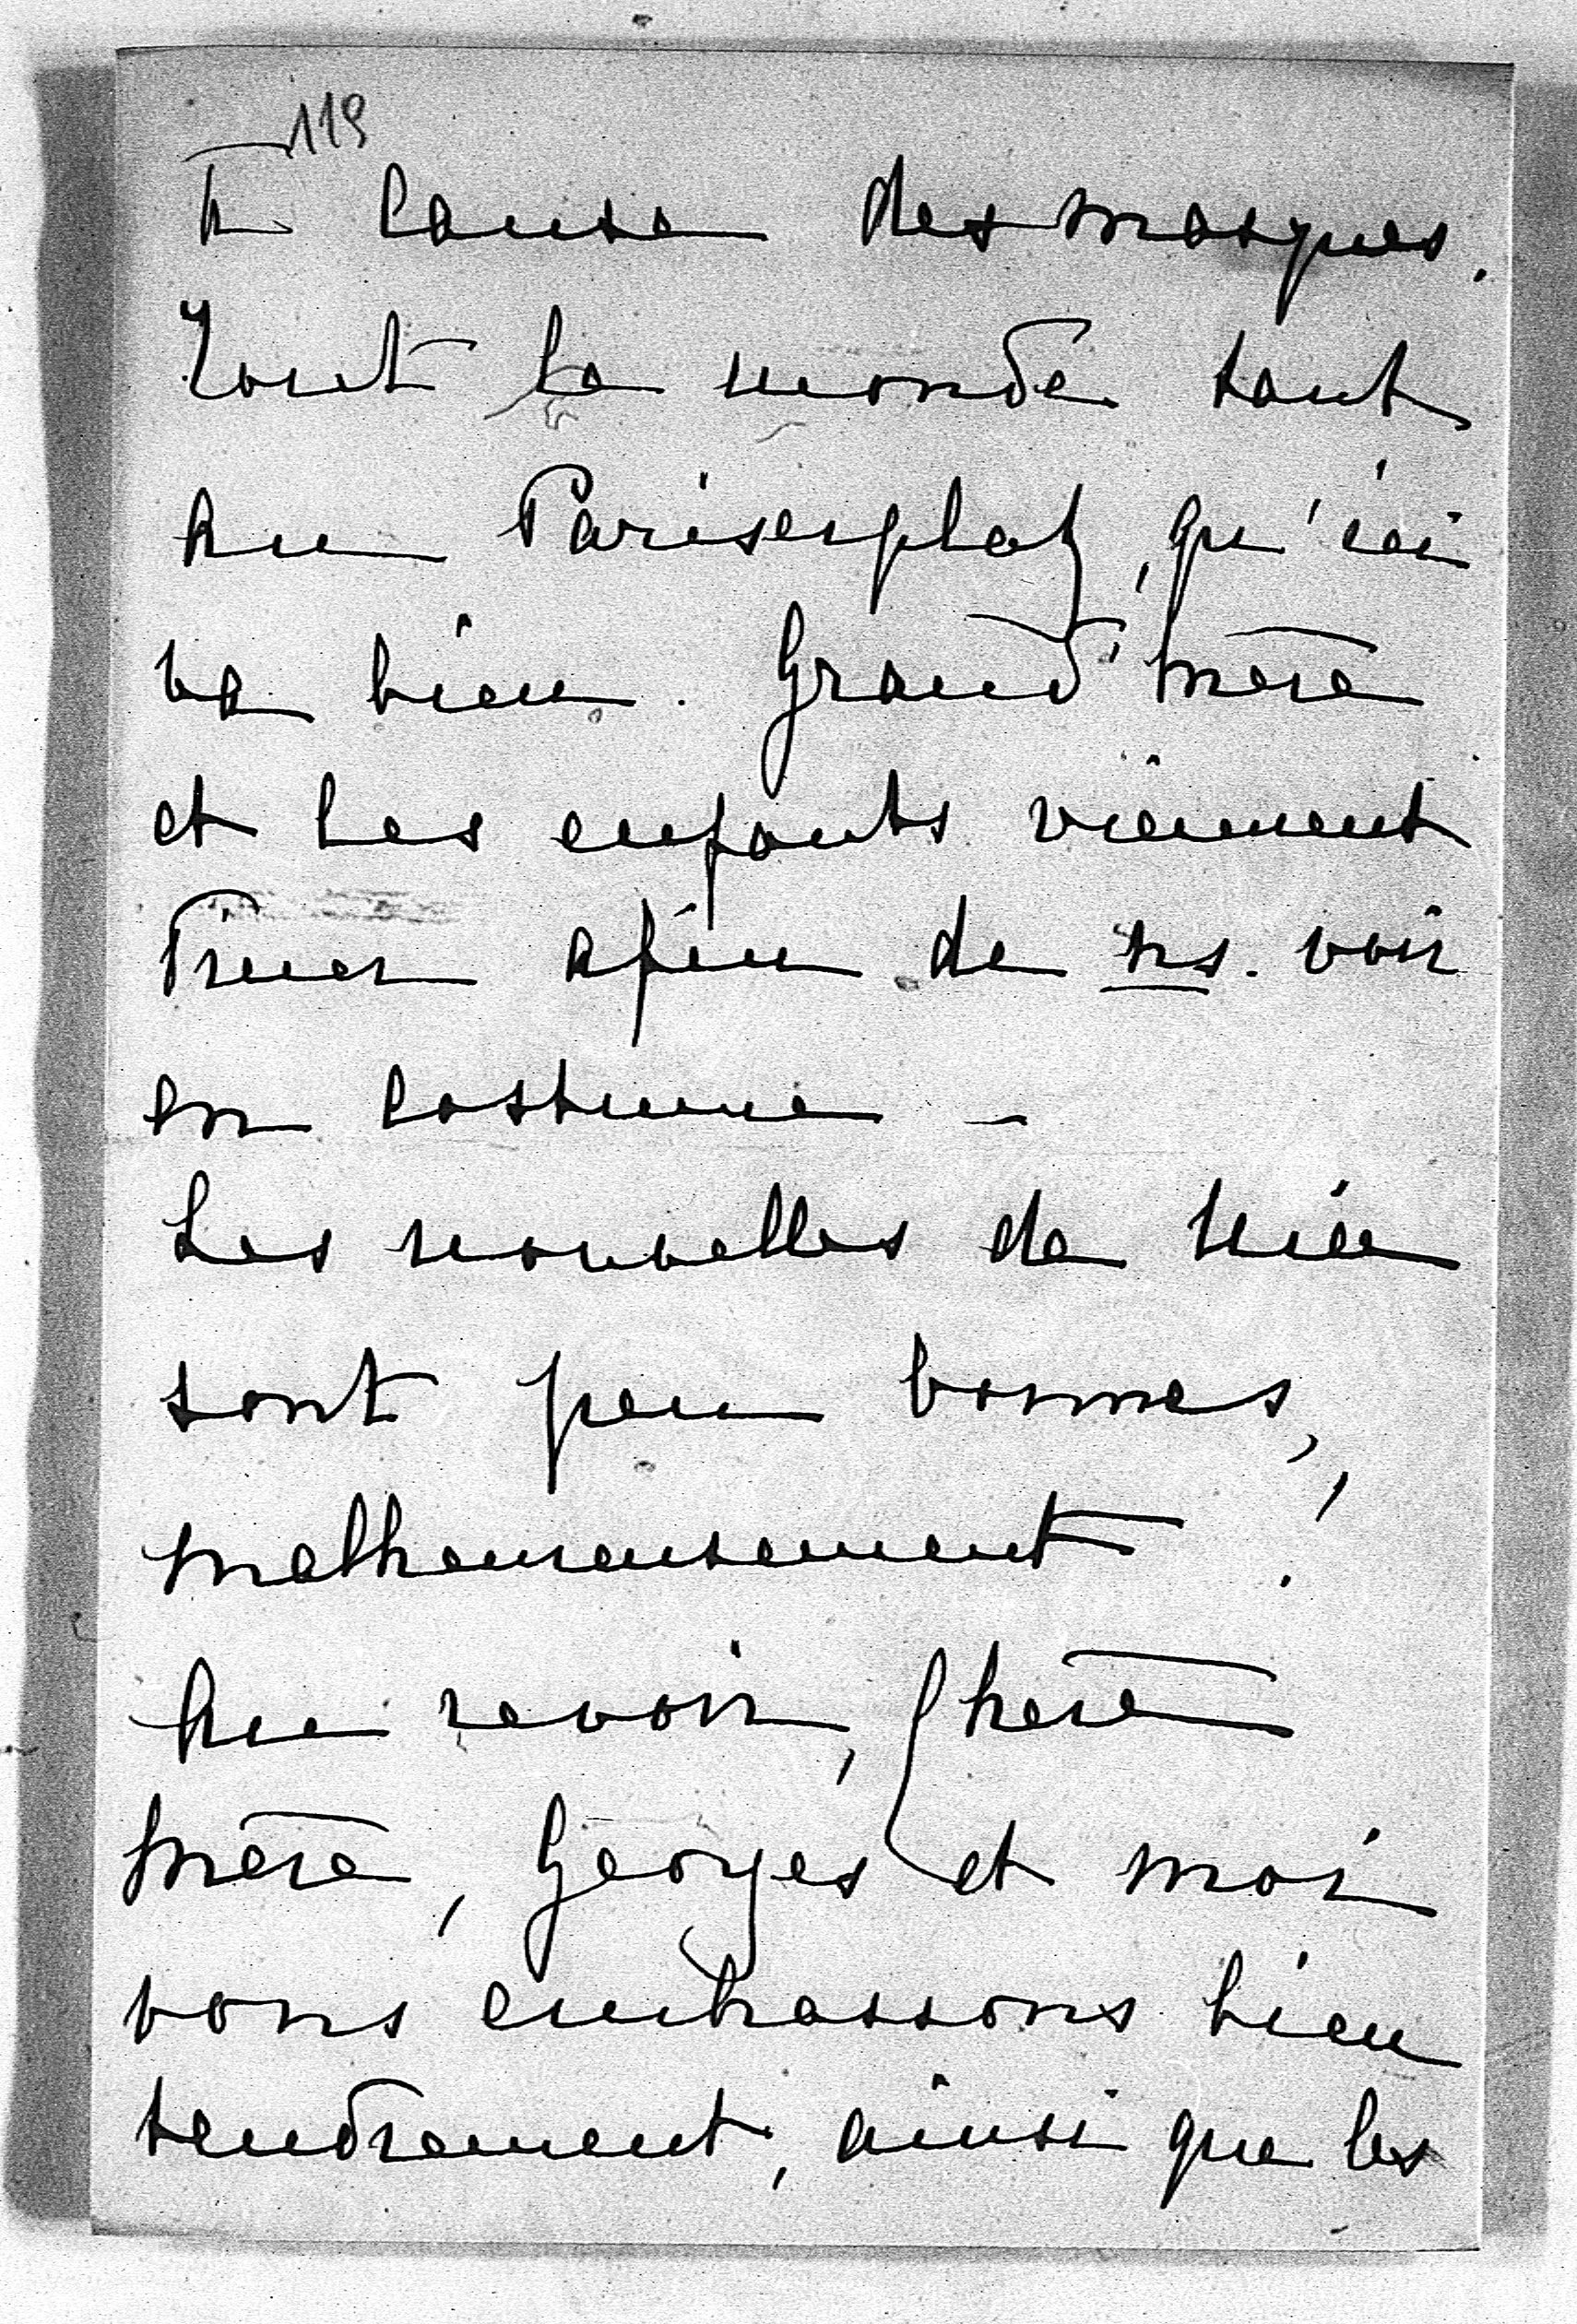 119
À cause des masques.
Tout le monde tant
au Pariserplatz, qu'ici
va bien. Grand'mère
et les enfants viennent
dîner afin de ns. voir
en costume –
Les nouvelles de
sont peu bonnes,
malheureusement!
Au revoir, chère
mère, Georges et moi
vous embrassons bien
tendrement, ainsi que les